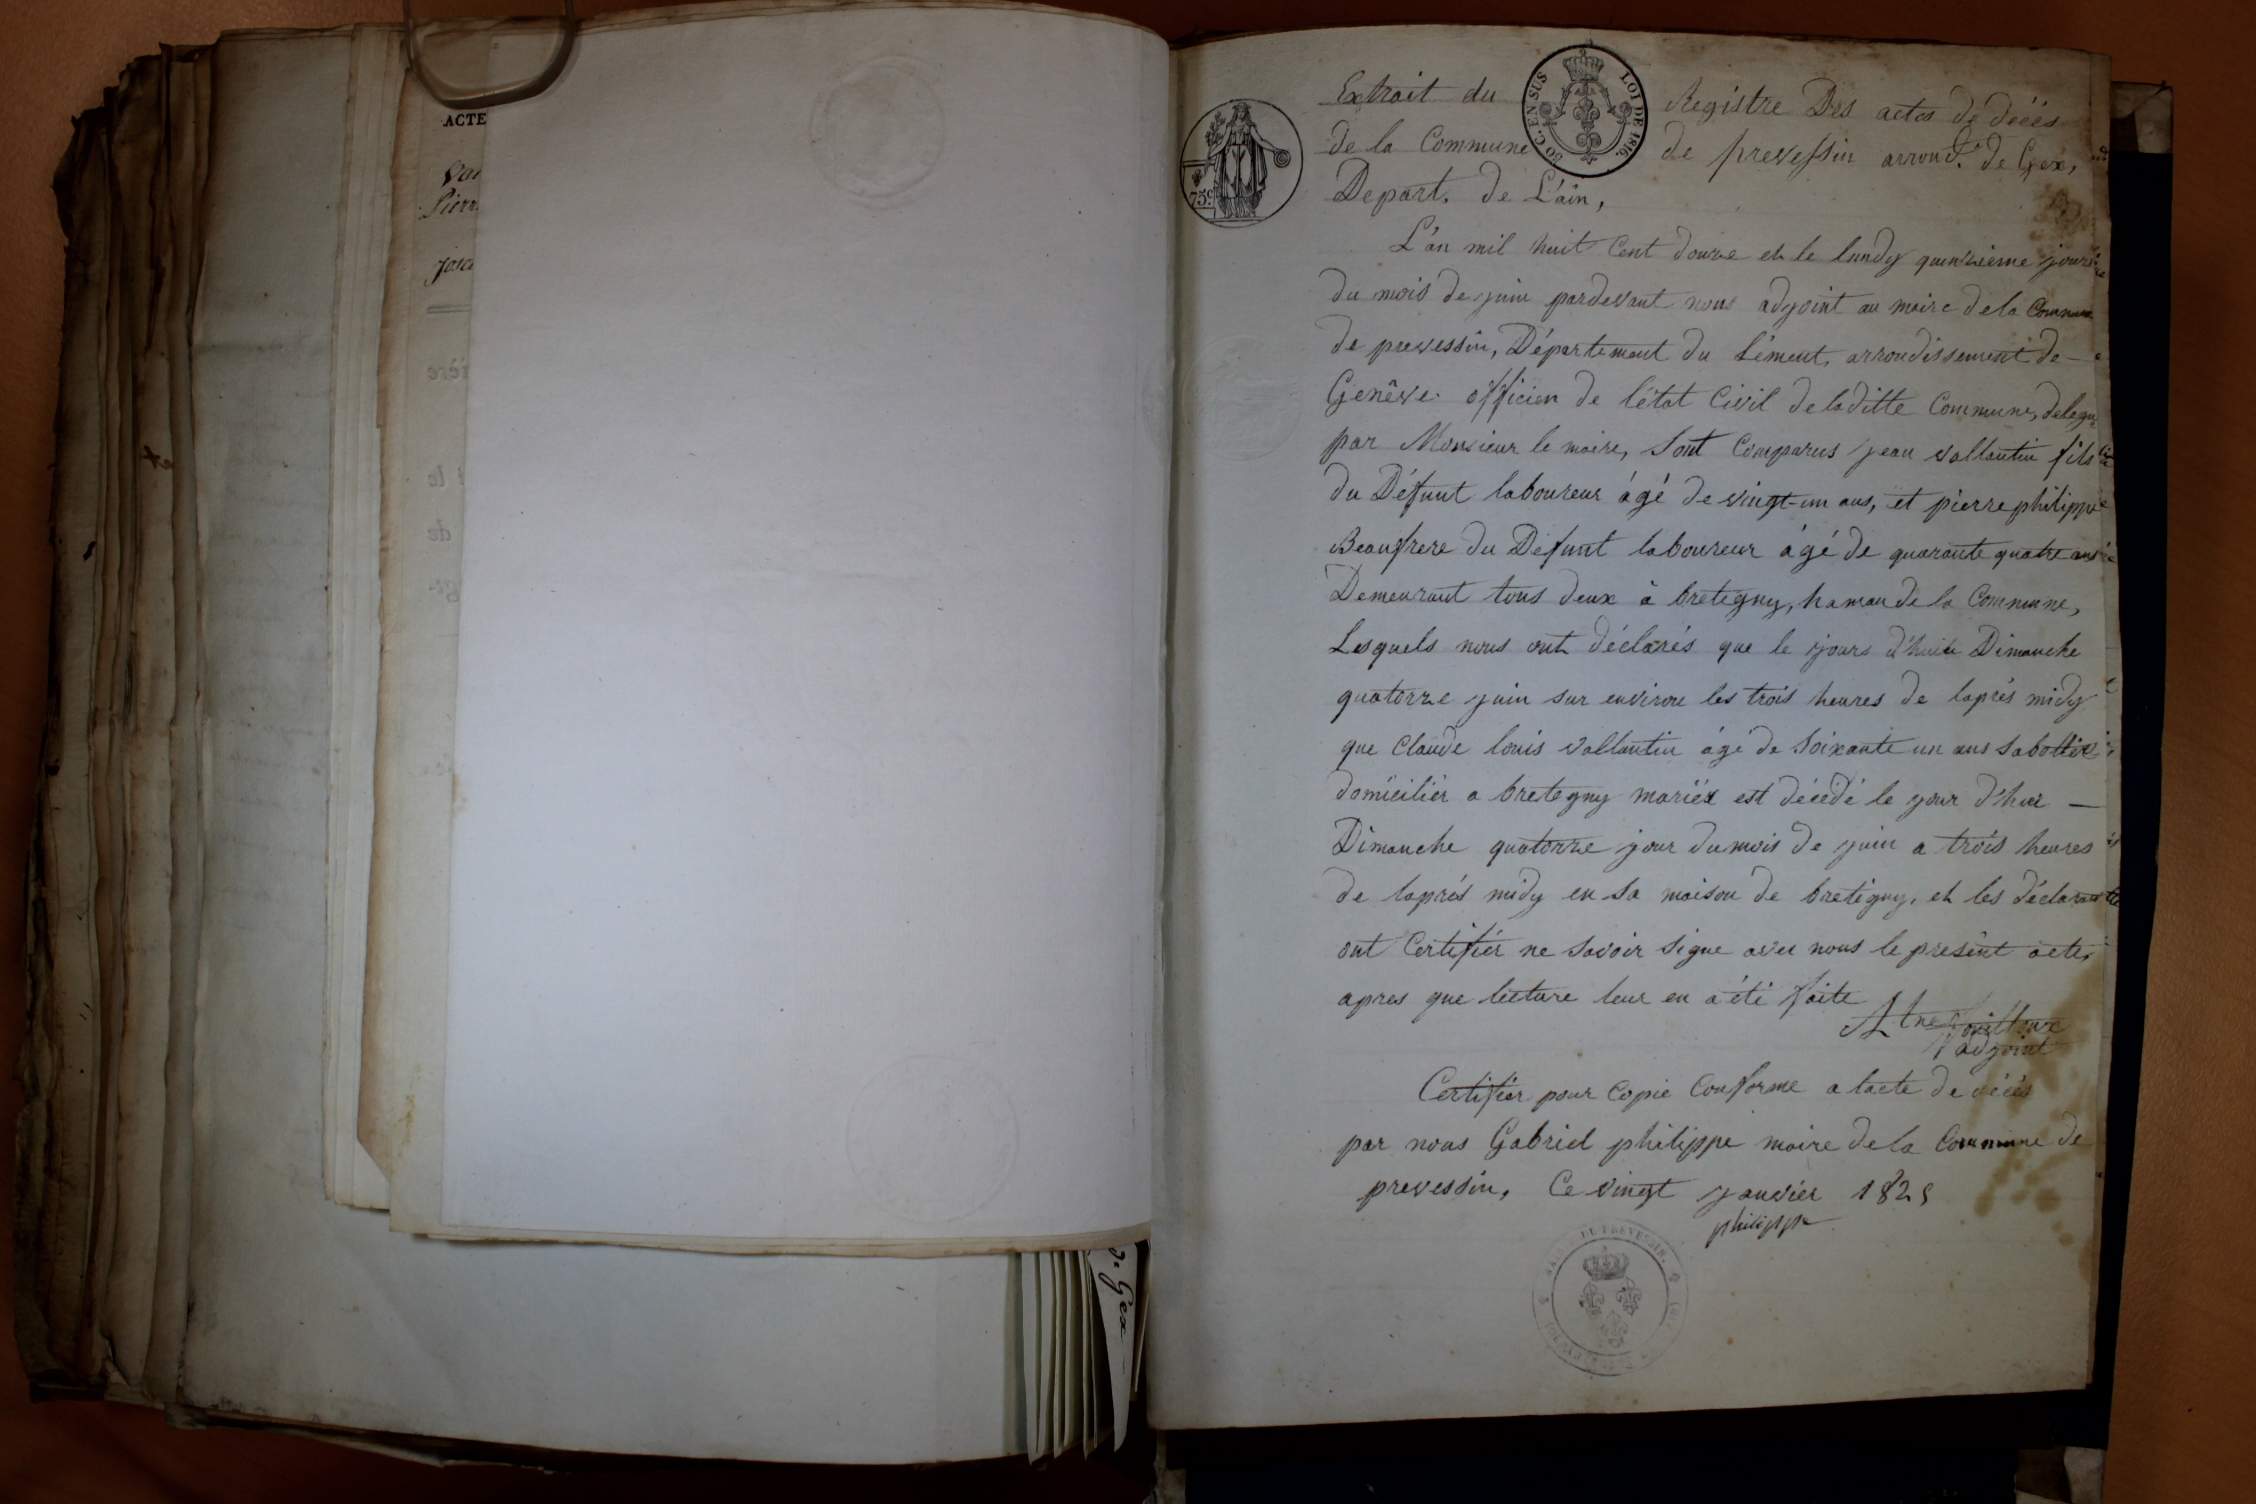 ACTE
Pierr
LOI DE 1816.
50 C. EN SUS
75c
Extrait du Registre Des actes de décés
de la Commune de prevessin arrond.t de Gex,
Depart. de L'ain,
L'an mil huit Cent douze et le lundy quinzieme jours
du mois de juin pardevant nous adjoint au maire de la Commune
de prevessin, Département du Lément, arrondissement de
Genêve officier de l'état Civil de laditte Commune, delegu
par Monsieur le maire, Sont Comparus jean vallantin fils
du Défunt laboureur ágé de vingt-un ans, et pierre philippe
Beaufrere du Defunt laboureur ágé de quarante quatre ans
Demeurant tous deux à bretegny, hamau de la Commune,
Lesquels nous ont déclarés que le jours d'huie Dimanche
quatorze juin sur environ les trois heures de laprés midy
que Claude louis vallantin ágé de Soixante un ans Sabottie
domicilier a bretegny mariéx est décédé le jour d'hui
Dimanche quatorze jour du mois de juin a trois heures
de laprés midy en Sa maison de bretigny, et les déclarants
ont Certifiér ne Savoir Signe avec nous le present acte,
apres que lecture leur en a été faite
adjoint
Certifiér pour Copie Conforme a lacte de décés
par nous Gabriel philippe maire de la Commune de
prevessin, Ce vingt janvier 1825
philippe
DE PREVESSIN
de Gex